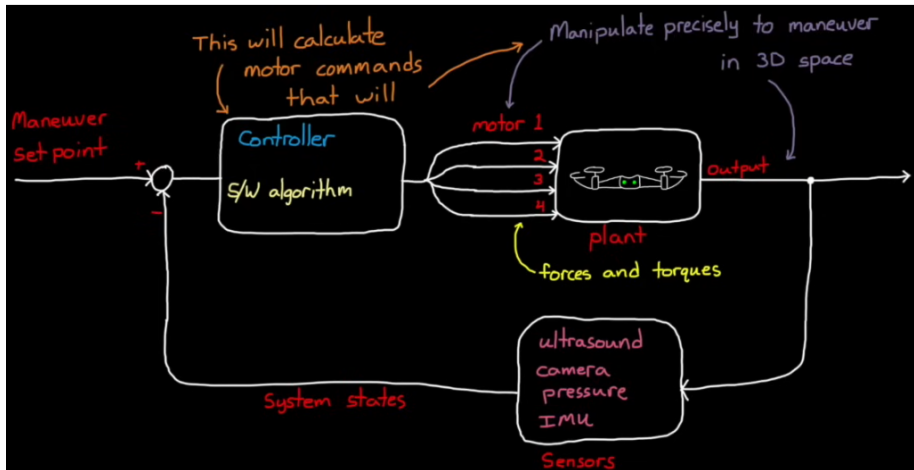 This will calculate
motor commands
that will
Manipulate precisely to maneuver
in 3D space
Maneuver
set point
+
-
Controller
S/W algorithm
motor 1
2
3
4
output
plant
forces and torques
ultrasound
camera
pressure
IMU
System states
Sensors